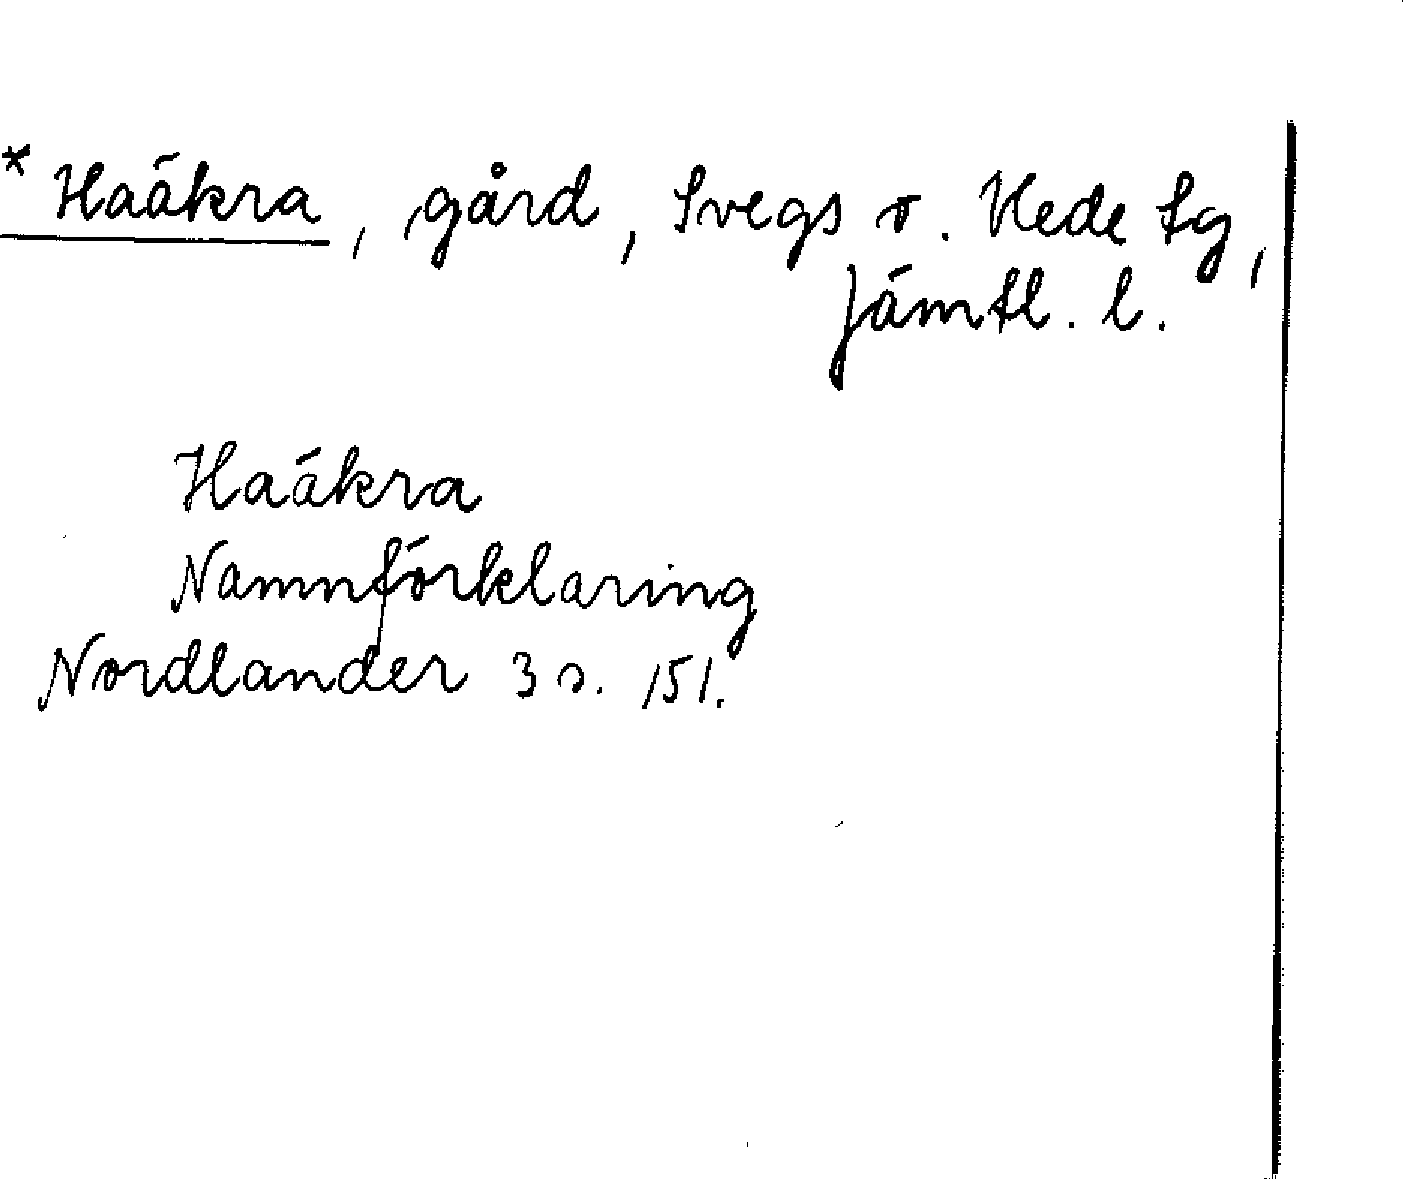 * Haäkra, gård, Svegs o. Hede tg,
Jämtl. l.
Haäkra
Namnförklaring
Nordlander 3 s. 151.